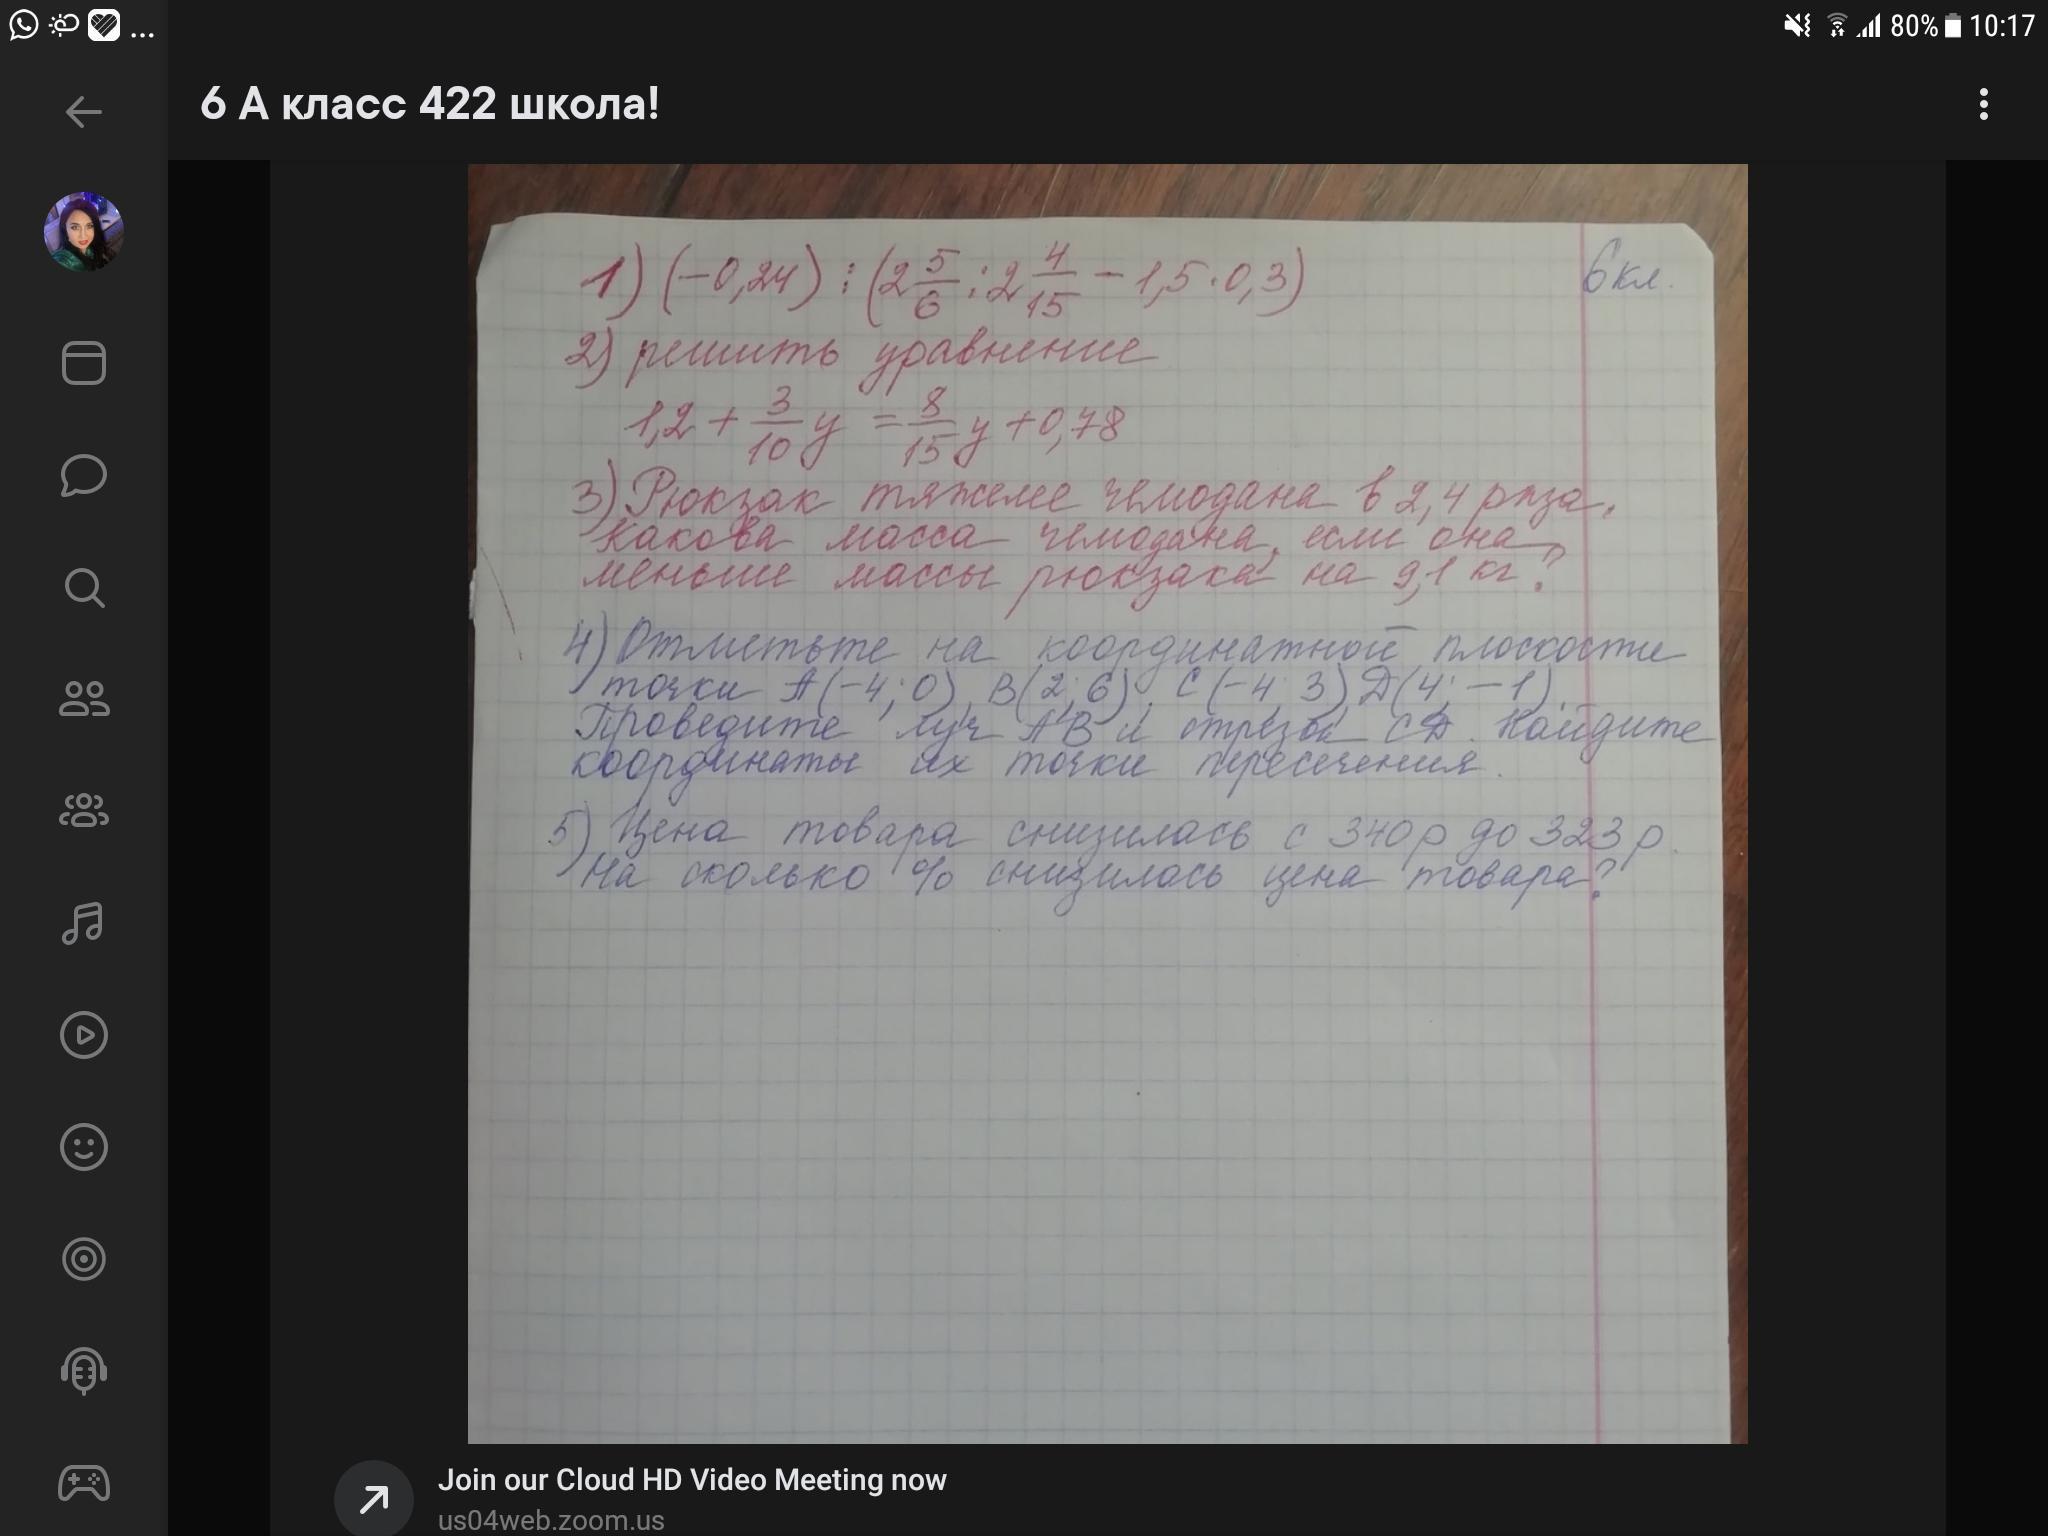 ... 80% 10:17
6 А класс 422 школа!
6 кл.
1) (-0,24) : (2 5/6 : 2 4/15 - 1,5 · 0,3)
2) решить уравнение
1,2 + 3/10 y = 8/15 y + 0,78
3) Рюкзак тяжелее чемодана в 2,4 раза.
Какова масса чемодана, если она
меньше массы рюкзака на 9,1 кг?
4) Отметьте на координатной плоскости
точки А(-4; 0), В(2; 6), С(-4; 3), Д(4; -1).
Проведите луч АВ и отрезок СД. Найдите
координаты их точки пересечения.
5) Цена товара снизилась с 340 р до 323 р.
На сколько % снизилась цена товара?
Join our Cloud HD Video Meeting now
us04web.zoom.us